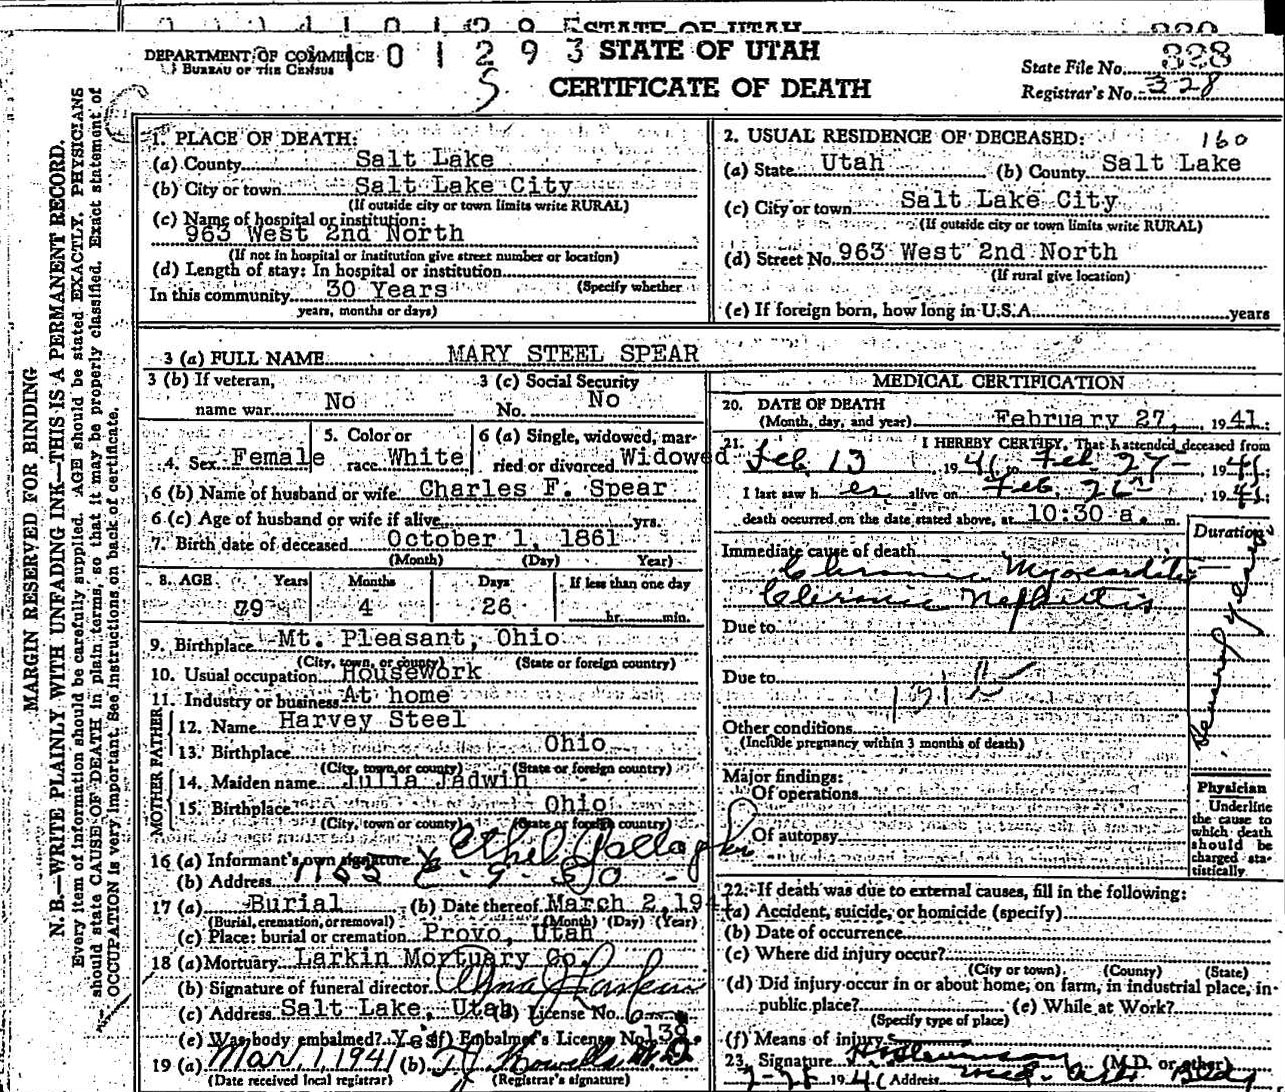 STATE OF UTAH
DEPARTMENT OF COMMERCE
BUREAU OF THE CENSUS
01293
STATE OF UTAH
CERTIFICATE OF DEATH
State File No. 328
Registrar's No. 328
MARGIN RESERVED FOR BINDING
N. B.—WRITE PLAINLY WITH UNFADING INK—THIS IS A PERMANENT RECORD.
Every item of information should be carefully supplied. AGE should be stated EXACTLY. PHYSICIANS
should state CAUSE OF DEATH in plain terms, so that it may be properly classified. Exact statement of
OCCUPATION is very important. See instructions on back of certificate.
1. PLACE OF DEATH:
(a) County Salt Lake
(b) City or town Salt Lake City
(If outside city or town limits write RURAL)
(c) Name of hospital or institution:
963 West 2nd North
(If not in hospital or institution give street number or location)
(d) Length of stay: In hospital or institution
In this community 30 Years (Specify whether
years, months or days)
2. USUAL RESIDENCE OF DECEASED: 160
(a) State Utah (b) County Salt Lake
(c) City or town Salt Lake City
(If outside city or town limits write RURAL)
(d) Street No. 963 West 2nd North
(If rural give location)
(e) If foreign born, how long in U.S.A. years
3 (a) FULL NAME MARY STEEL SPEAR
3 (b) If veteran, 3 (c) Social Security
name war No No. No
4. Sex Female 5. Color or race White 6 (a) Single, widowed, married or divorced Widowed
6 (b) Name of husband or wife Charles F. Spear
6 (c) Age of husband or wife if alive yrs.
7. Birth date of deceased October 1, 1861
(Month) (Day) Year)
8. AGE Years Months Days If less than one day
79 4 26 hr. min.
9. Birthplace Mt. Pleasant, Ohio
(City, town, or county) (State or foreign country)
10. Usual occupation Housework
11. Industry or business At home
FATHER
12. Name Harvey Steel
13. Birthplace Ohio
(City, town or county) (State or foreign country)
MOTHER
14. Maiden name Julia Jadwin
15. Birthplace Ohio
(City, town or county) (State or foreign country)
16 (a) Informant's own signature Ethel Gallagher
(b) Address
17 (a) Burial (b) Date thereof March 2, 1941
(Burial, cremation, or removal) (Month) (Day) (Year)
(c) Place: burial or cremation Provo, Utah
18 (a) Mortuary Larkin Mortuary Co.
(b) Signature of funeral director
(c) Address Salt Lake, Utah (d) License No.
(e) Was body embalmed? Yes (f) Embalmer's License No. 139
19 (a) Mar 1, 1941 (b)
(Date received local registrar) (Registrar's signature)
MEDICAL CERTIFICATION
20. DATE OF DEATH
(Month, day, and year) February 27, 1941
21. I HEREBY CERTIFY, That I attended deceased from
Feb. 13, 1941 to Feb 27, 1941
I last saw her alive on Feb. 26, 1941
death occurred on the date stated above, at 10:30 a. m.
Duration
Immediate cause of death
Chronic Myocarditis
Chronic Nephritis
Several years
Due to
Due to
131
Other conditions
(Include pregnancy within 3 months of death)
Major findings:
Of operations
Of autopsy
Physician
Underline
the cause to
which death
should be
charged sta-
tistically.
22. If death was due to external causes, fill in the following:
(a) Accident, suicide, or homicide (specify)
(b) Date of occurrence
(c) Where did injury occur?
(City or town) (County) (State)
(d) Did injury occur in or about home, on farm, in industrial place, in-
public place? (e) While at Work?
(Specify type of place)
(f) Means of injury
23. Signature (M.D. or other)
2-28 1941 Address Med. Arts Bldg